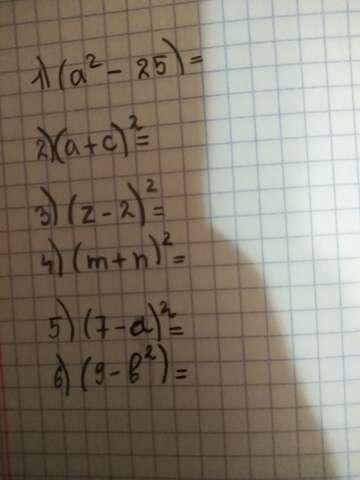 1) (a² - 25) =
2) (a+c)² =
3) (z - 2)² =
4) (m+n)² =
5) (7-a)² =
6) (9-b²) =